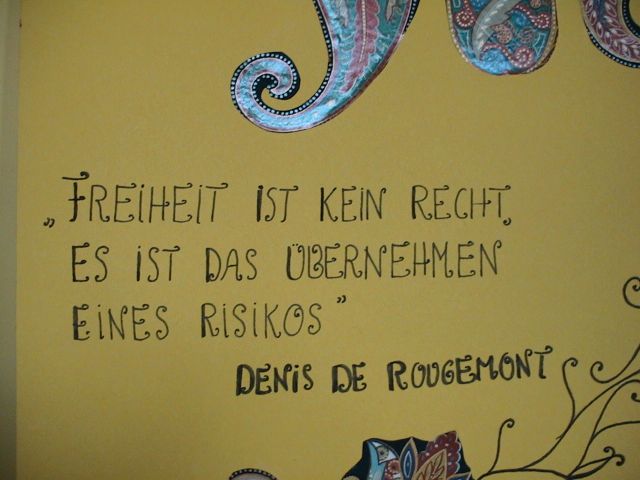 „FREIHEIT IST KEIN RECHT,
ES IST DAS ÜBERNEHMEN
EINES RISIKOS”
DENIS DE ROUGEMONT